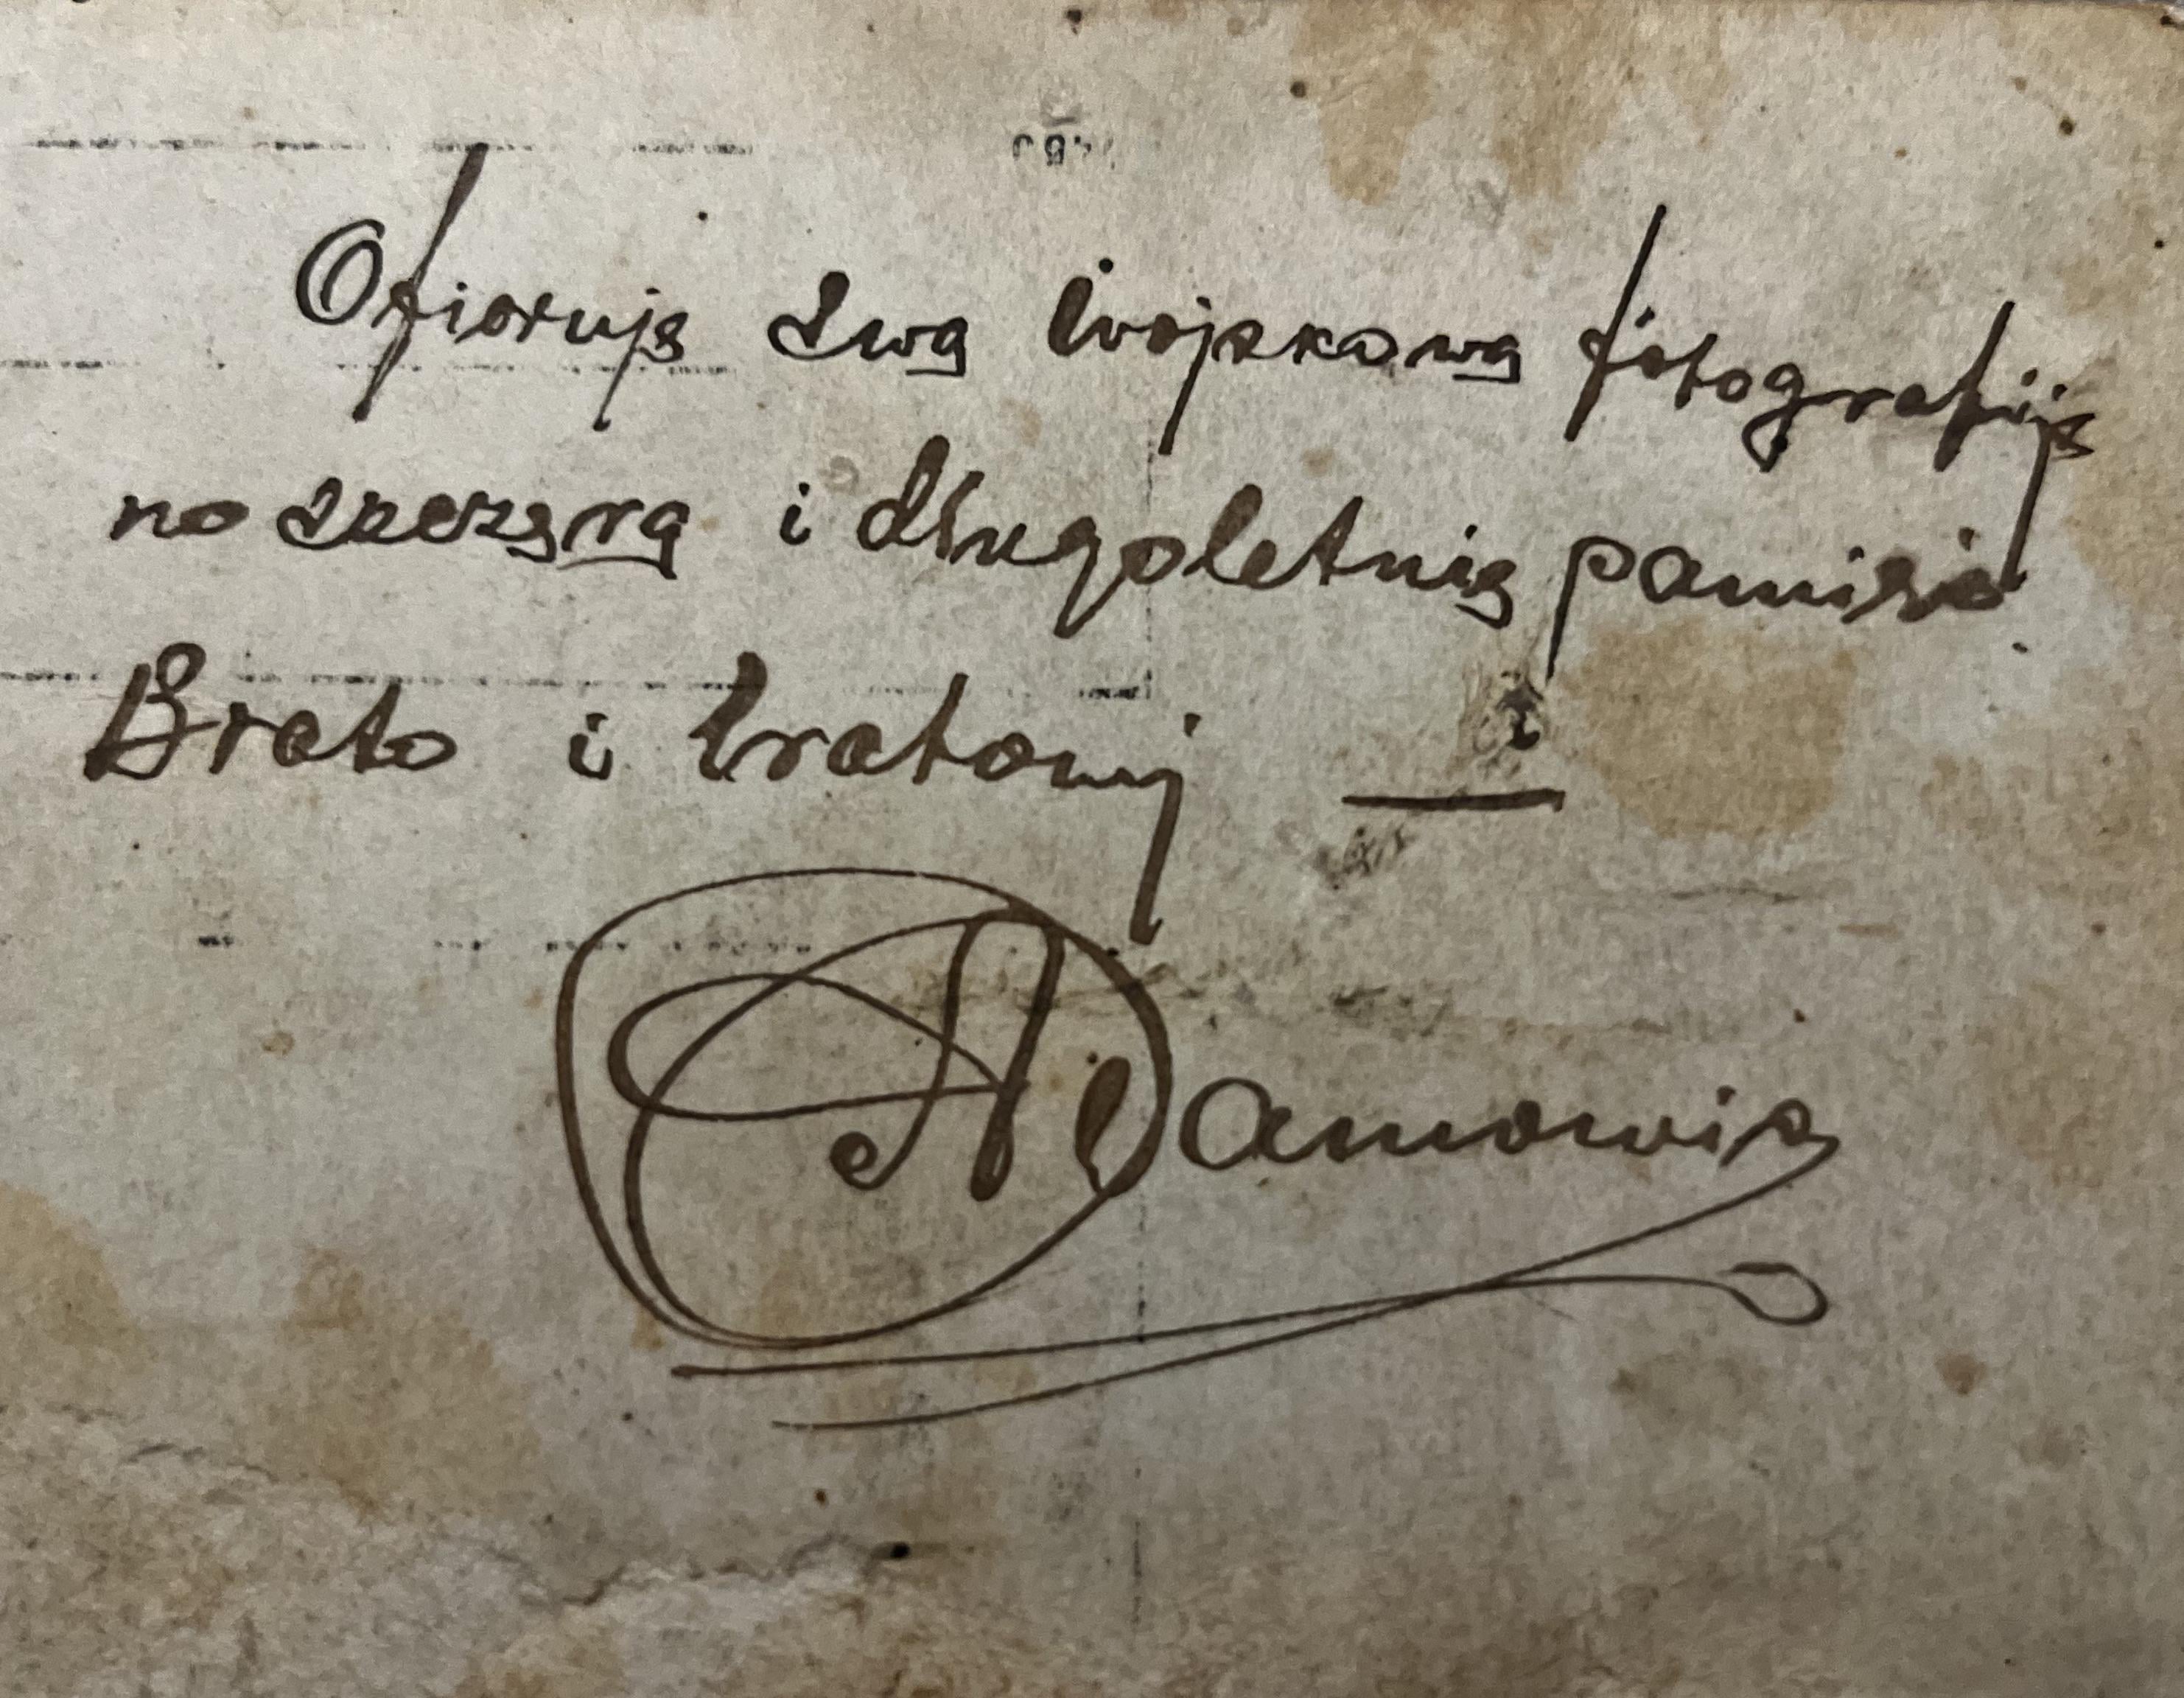 Ofiaruję swą wojskową fotografiję
na szczęrą i długoletnią pamięć
Brata i bratowej
Adamowicz